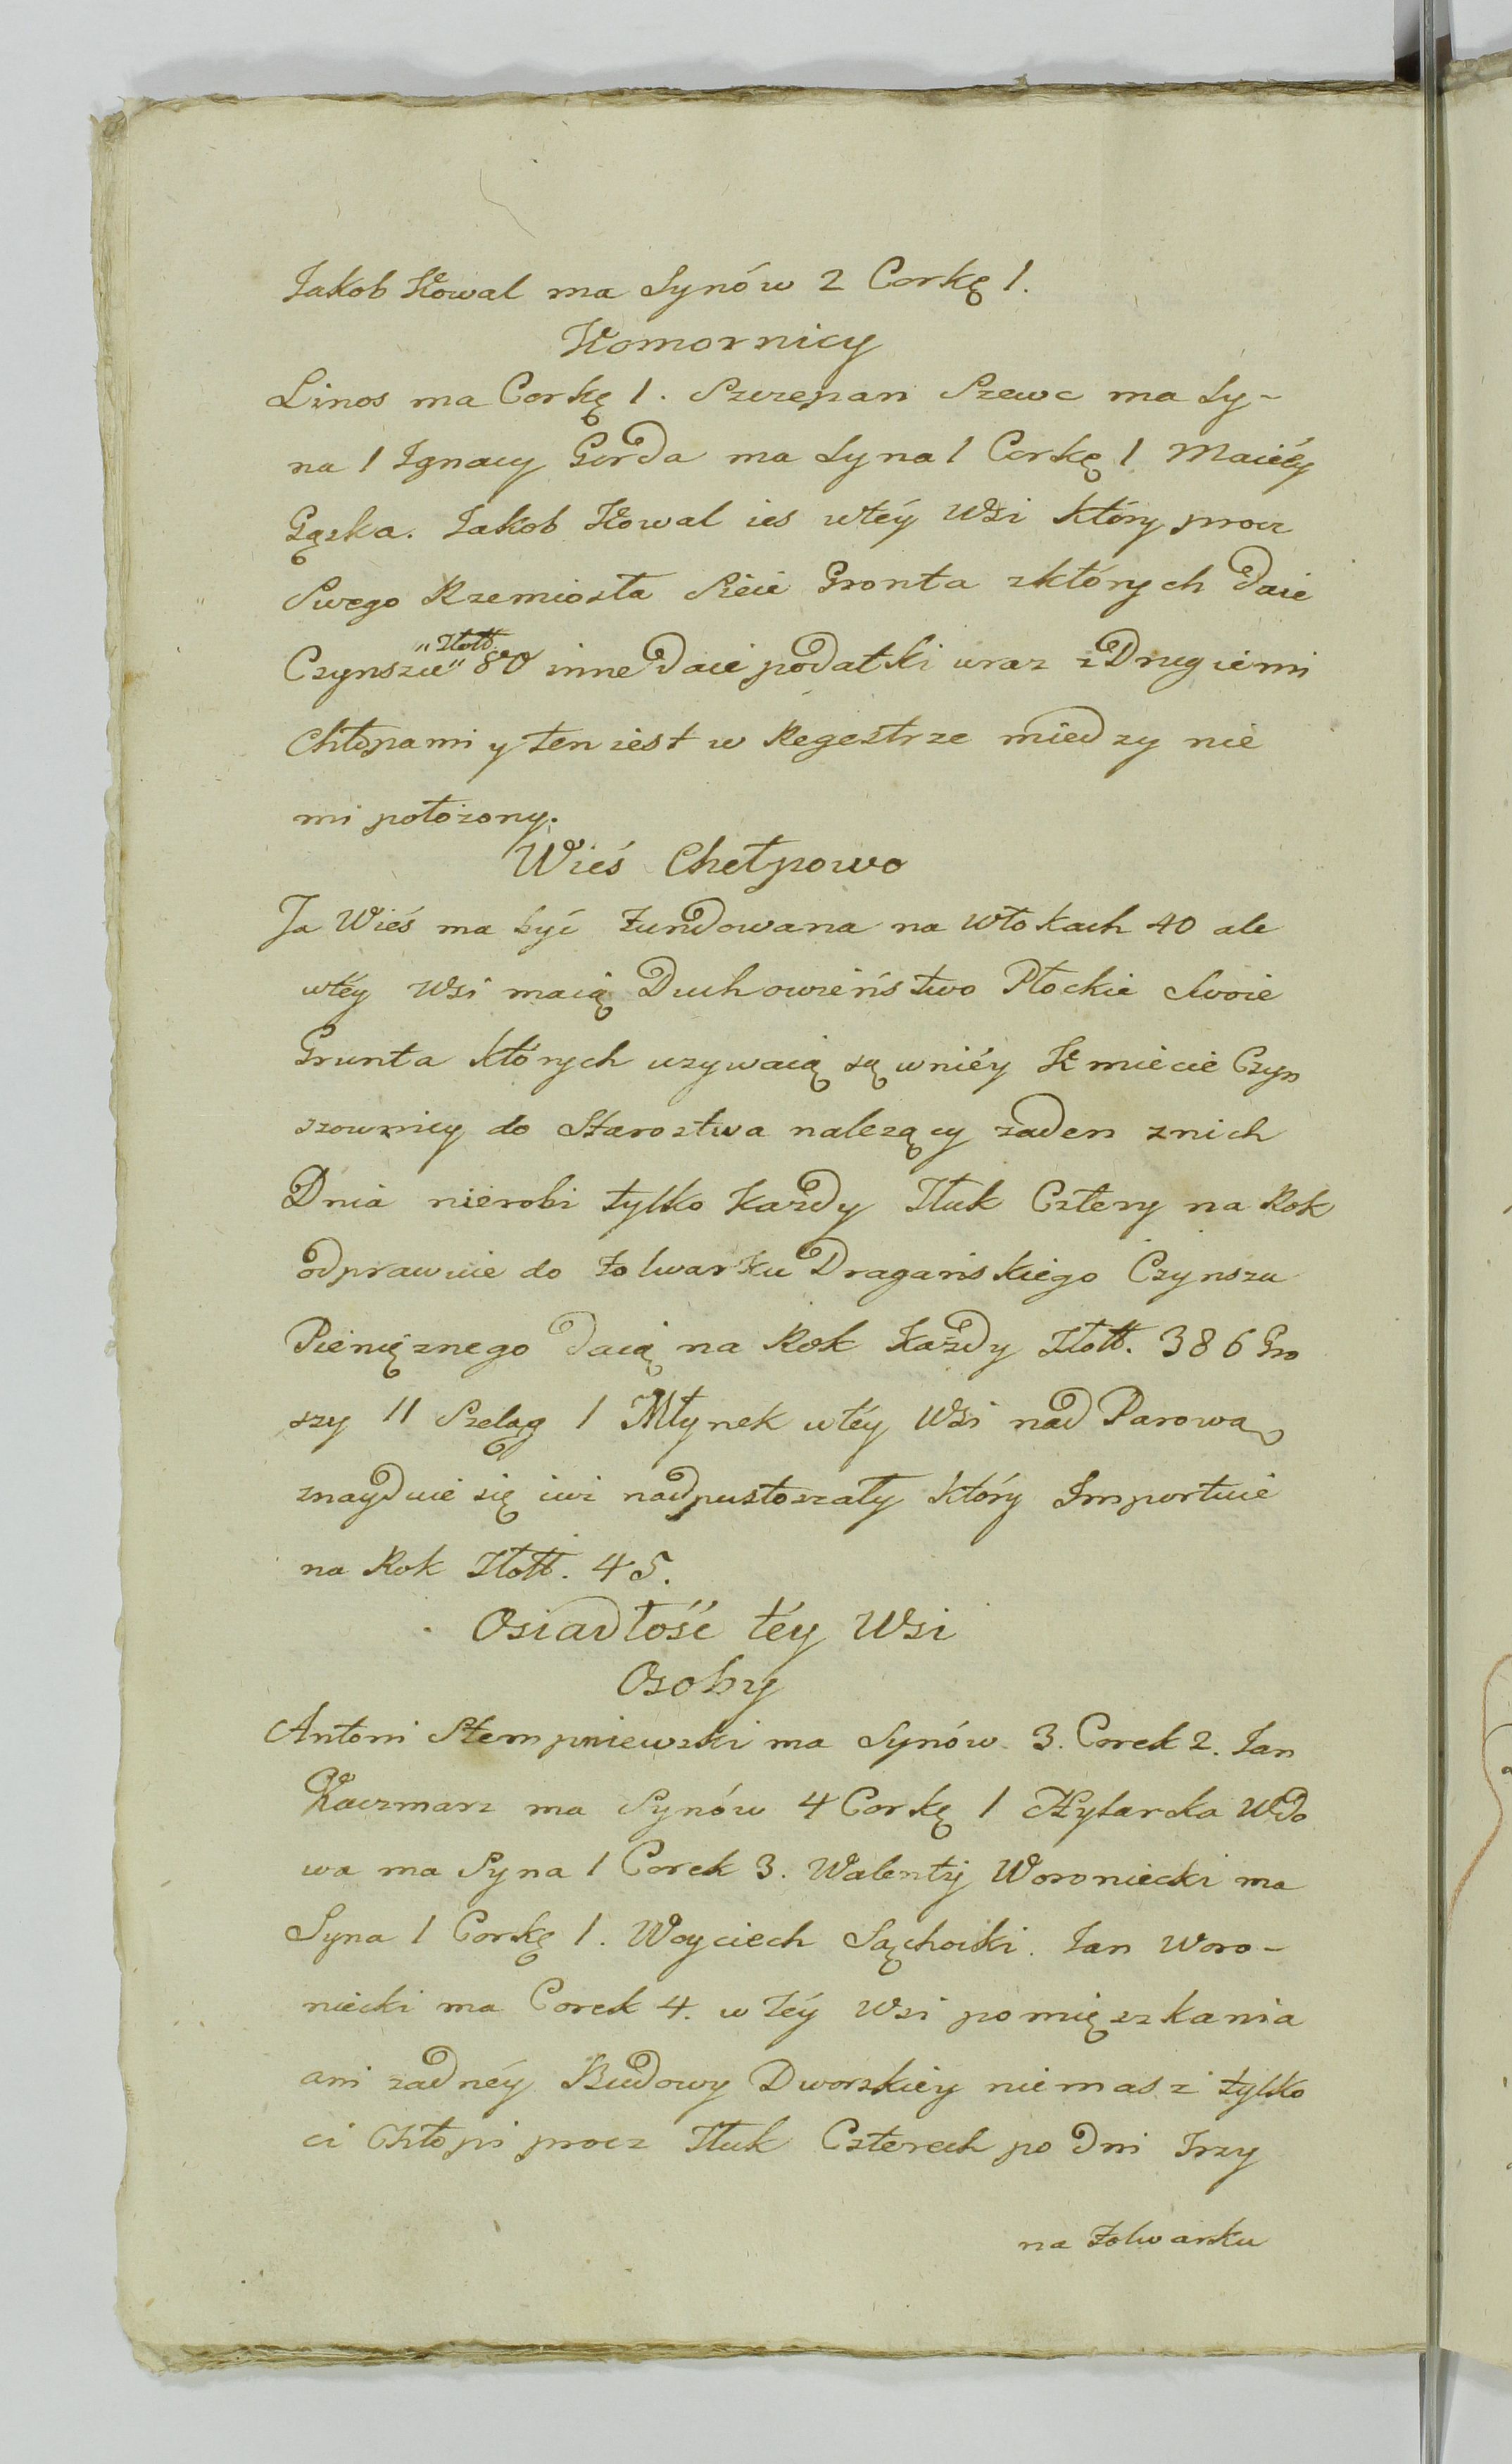 Jakob Kowal ma Synów 2 Corkę 1.
Komornicy
Linos ma Corkę 1. Szczepan Szewc ma Sy-
na 1 Ignacy Gorda ma Syna 1 Corkę 1 Maciéy
Gąska. Jakob Kowal ies wtéy Wsi który procz
Swego Rzemiosła Sieie Gronta zktórych daie
Czynszu "Złott. 80 inne daie podatki wraz z Drugiemi
Chłopami y ten iest w Regestrze miedzy nie
mi położony.
Wieś Chełpowo
Ta Wieś ma być fundowana na włokach 40 ale
wtéy Wsi maią Duchowieństwo Płockie Swoie
Grunta których uzywaią są wniéy Kmiecie Czyn
szownicy do Starostwa nalezący zaden znich
Dnia nierobi tylko każdy Tłuk Cztery na Rok
odprawuie do folwarku Dragańskiego Czynszu
Pienięznego daią na Rok każdy Złott. 386 Gro
szy 11 Szeląg 1 Młynek wtéy Wsi nad Parową
znayduie się iuz nadpustoszały który Importuie
na Rok Złott. 45.
Osiadłość téy Wsi
Osoby
Antoni Stempniewski ma Synów 3. Corek 2. Jan
Kaczmarz ma Synów 4 Corkę 1 Wdo
wa ma Syna 1 Corek 3. Walenty Woroniecki ma
Syna 1 Corkę 1. Woyciech Sąchocki. Jan Woro-
niecki ma Corek 4. w téy Wsi pomięszkania
ani zadnéy Budowy Dworskiey niemasz tylko
ci Chłopi procz Tłuk Czterech po Dni Trzy
na folwarku